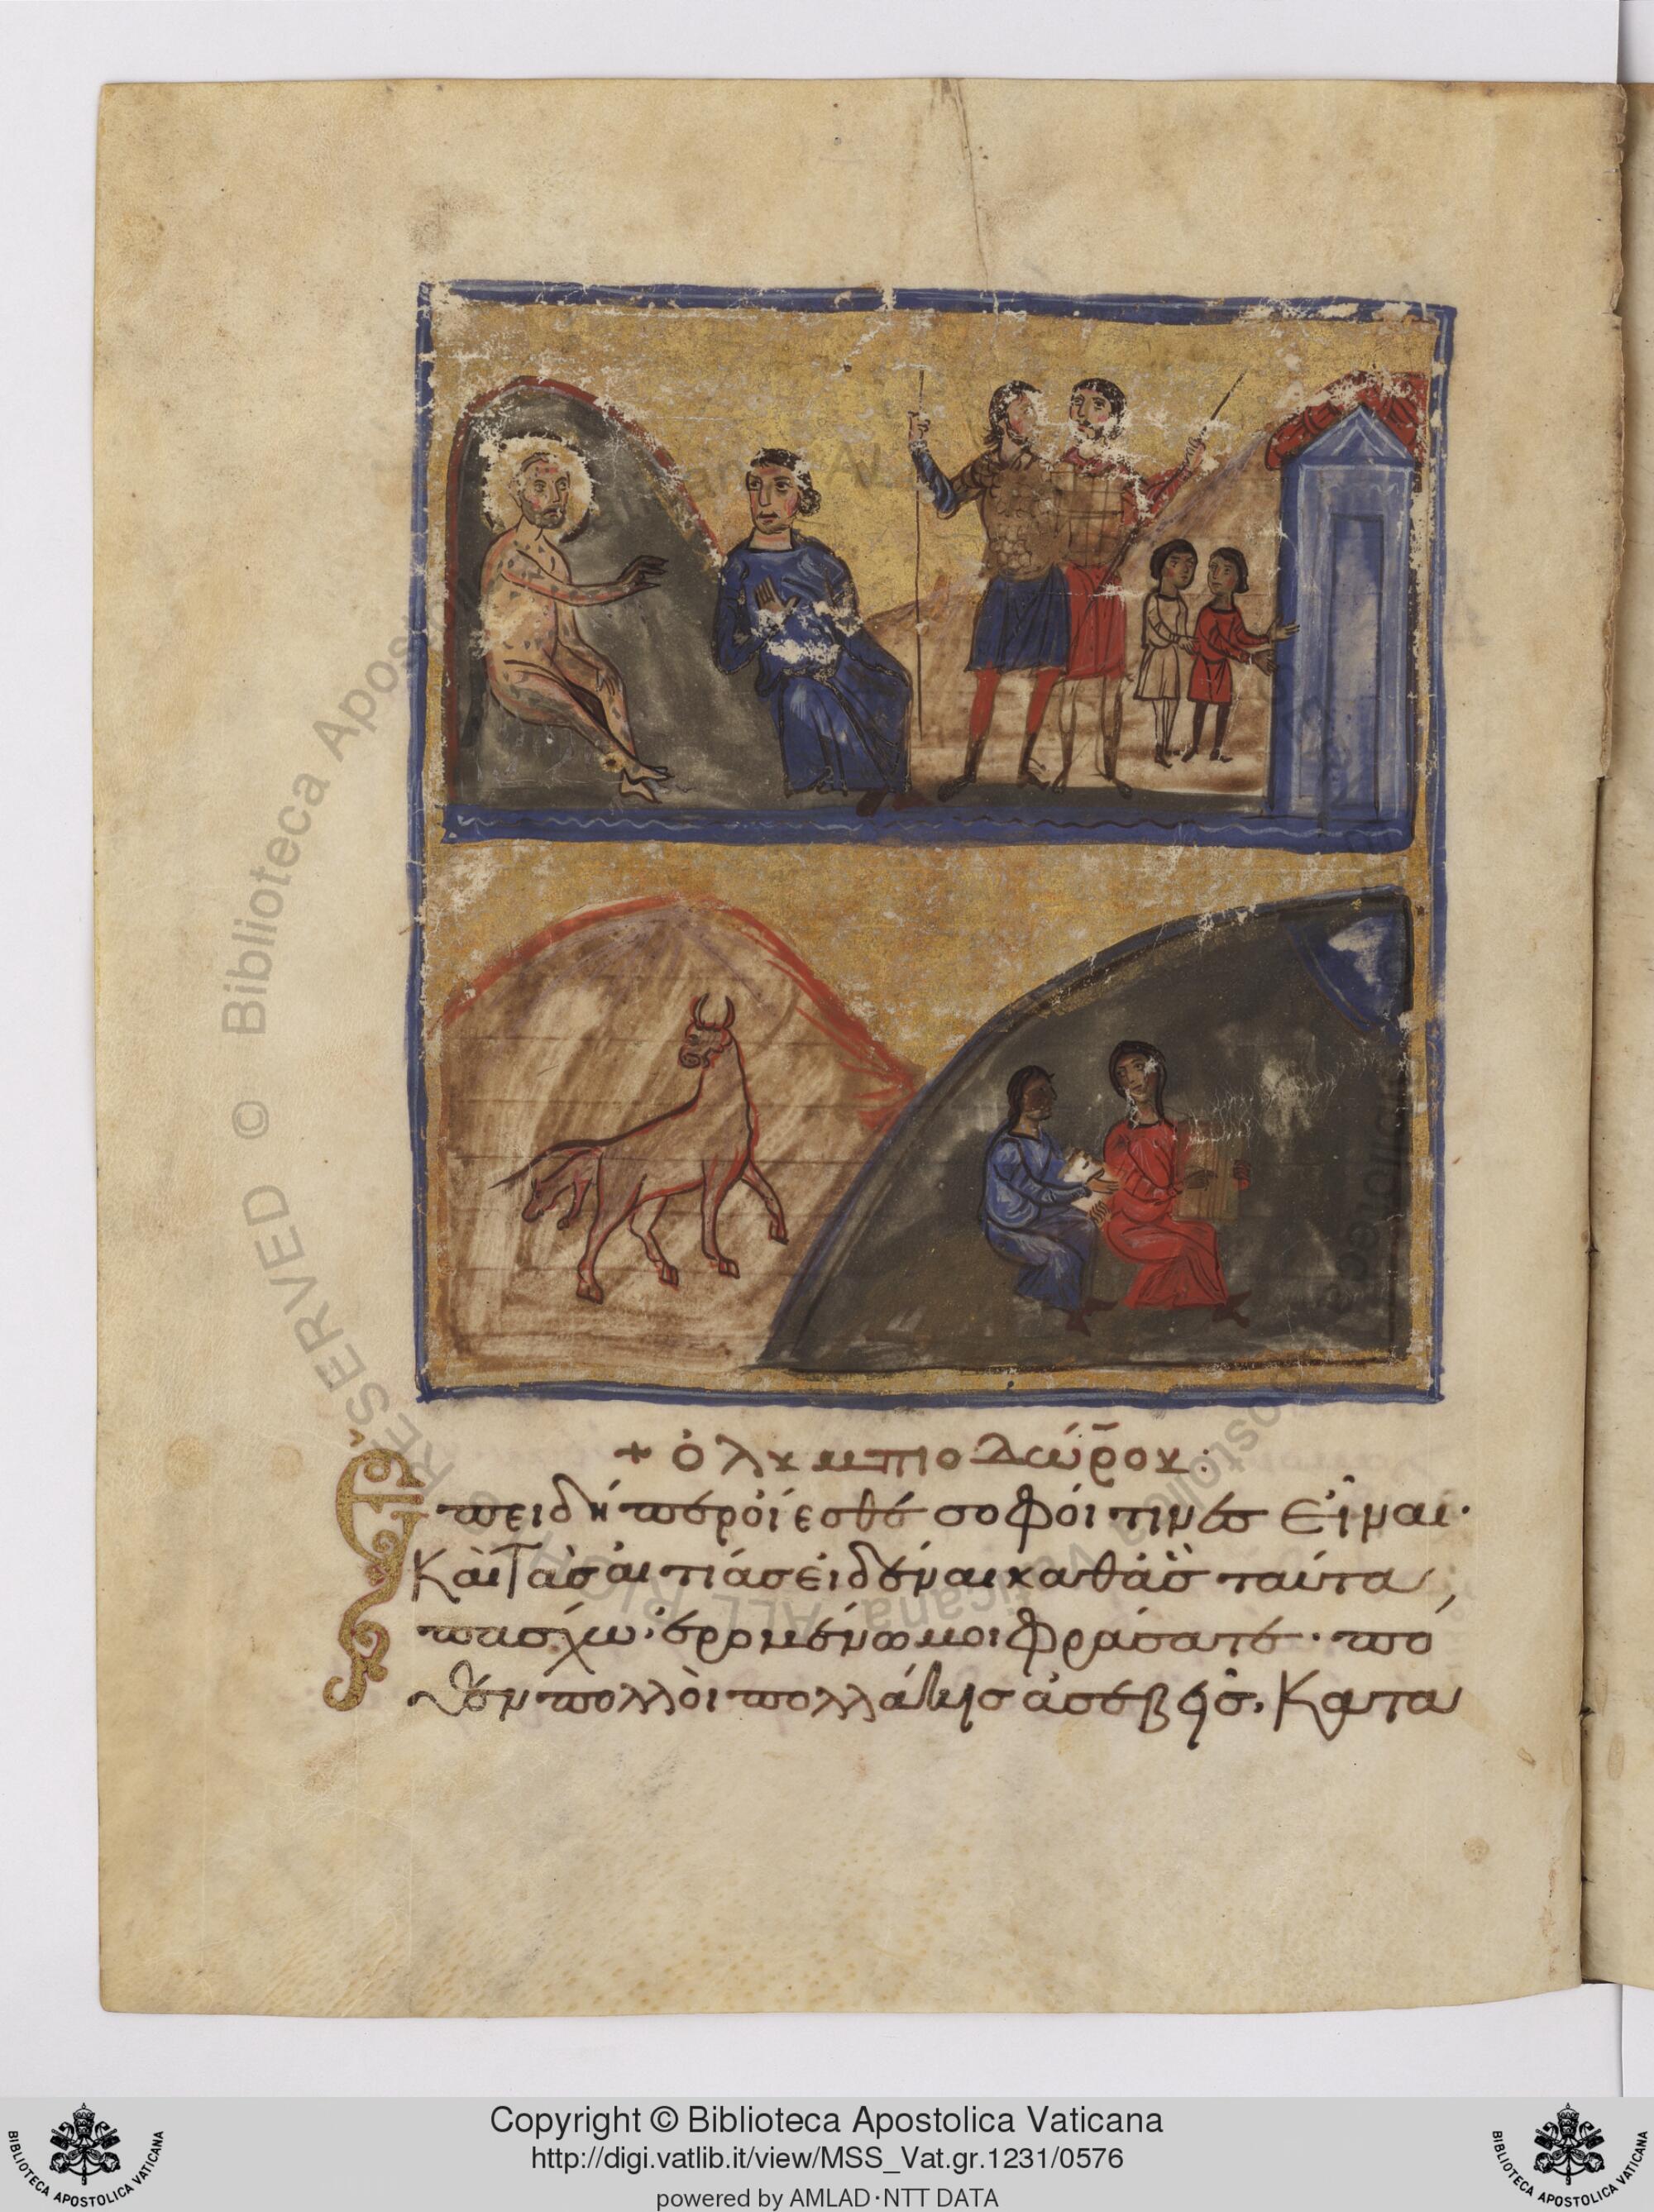 + ὀλυμπιοδώρου:
Ἐπειδὴ περ οἴεσθε σοφοί τινες εἶναι·
Καὶ τὰς αἰτίας εἰδέναι καθ' ἃς ταῦτα
πασχω· ἐρομένω μοι φράσατε· πό
θεν πολλοὶ πολλάκις ἀσεβεῖς, Κατα
© Biblioteca Apostolica Vaticana ALL RIGHTS RESERVED
Copyright © Biblioteca Apostolica Vaticana
http://digi.vatlib.it/view/MSS_Vat.gr.1231/0576
powered by AMLAD·NTT DATA
BIBLIOTECA APOSTOLICA VATICANA
BIBLIOTECA APOSTOLICA VATICANA